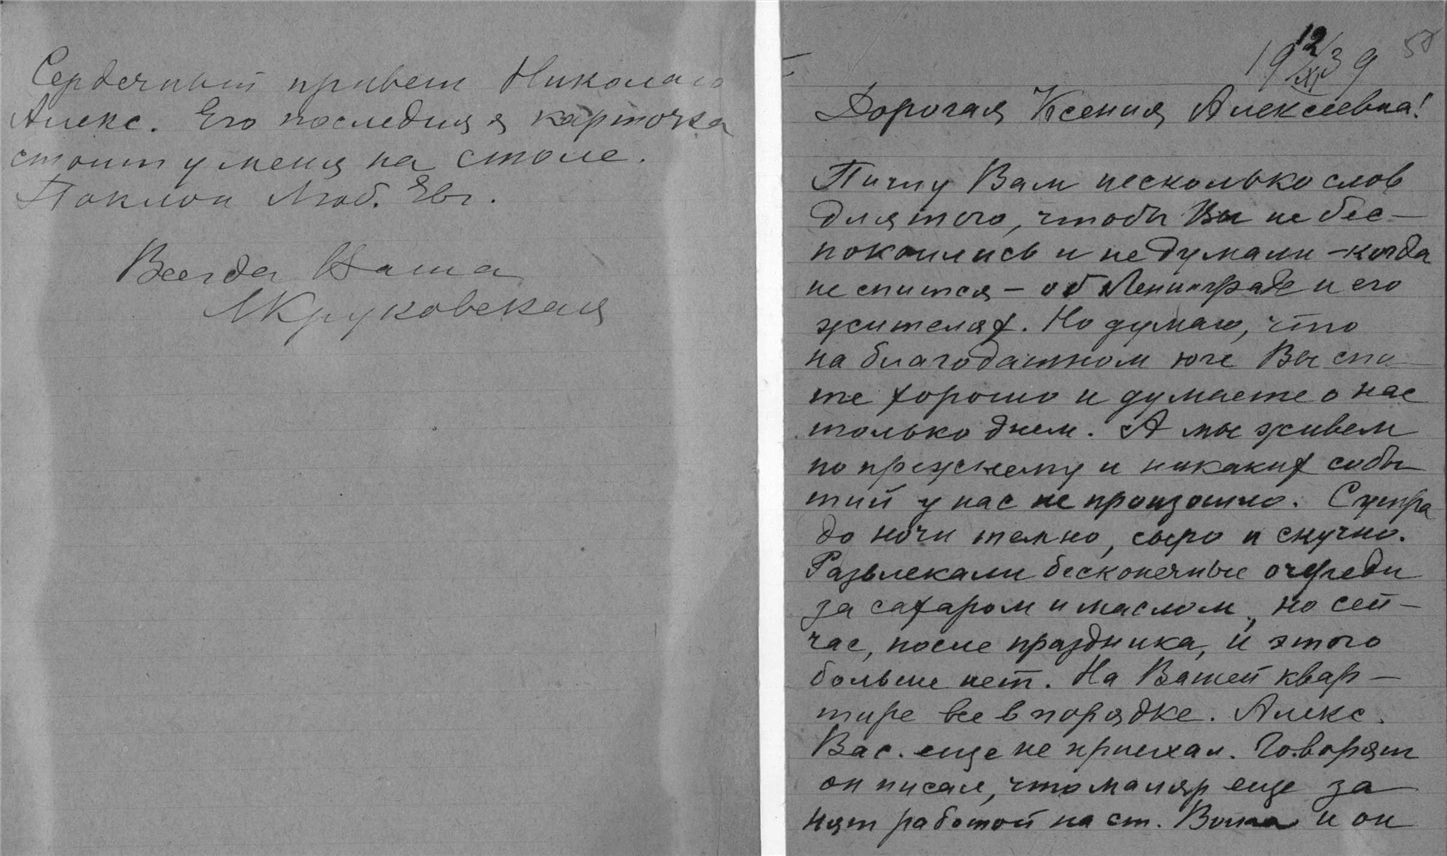 Сердечный привет Николаю
Алекс. Его последняя карточка
стоит у меня на столе.
Поклон Люб. Евг.
Всегда Ваша
МКруковская
12
19 XI 39
58
Дорогая Ксения Алексеевна!
Пишу Вам несколько слов
для того, чтобы Вы не бес-
покоились и не думали - когда
не спится - об Ленинграде и его
жителях. Но думаю, что
на благодатном юге Вы спи-
те хорошо и думаете о нас
только днем. А мы живем
по прежнему и никаких собы
тий у нас не произошло. С утра
до ночи темно, сыро и скучно.
Развлекали бесконечные очереди
за сахаром и маслом, но сей-
час, после праздника, и этого
больше нет. На Вашей квар-
тире все в порядке. Алекс.
Вас. еще не приехал. Говорят
он писал, что маляр еще за
нят работой на ст. и он